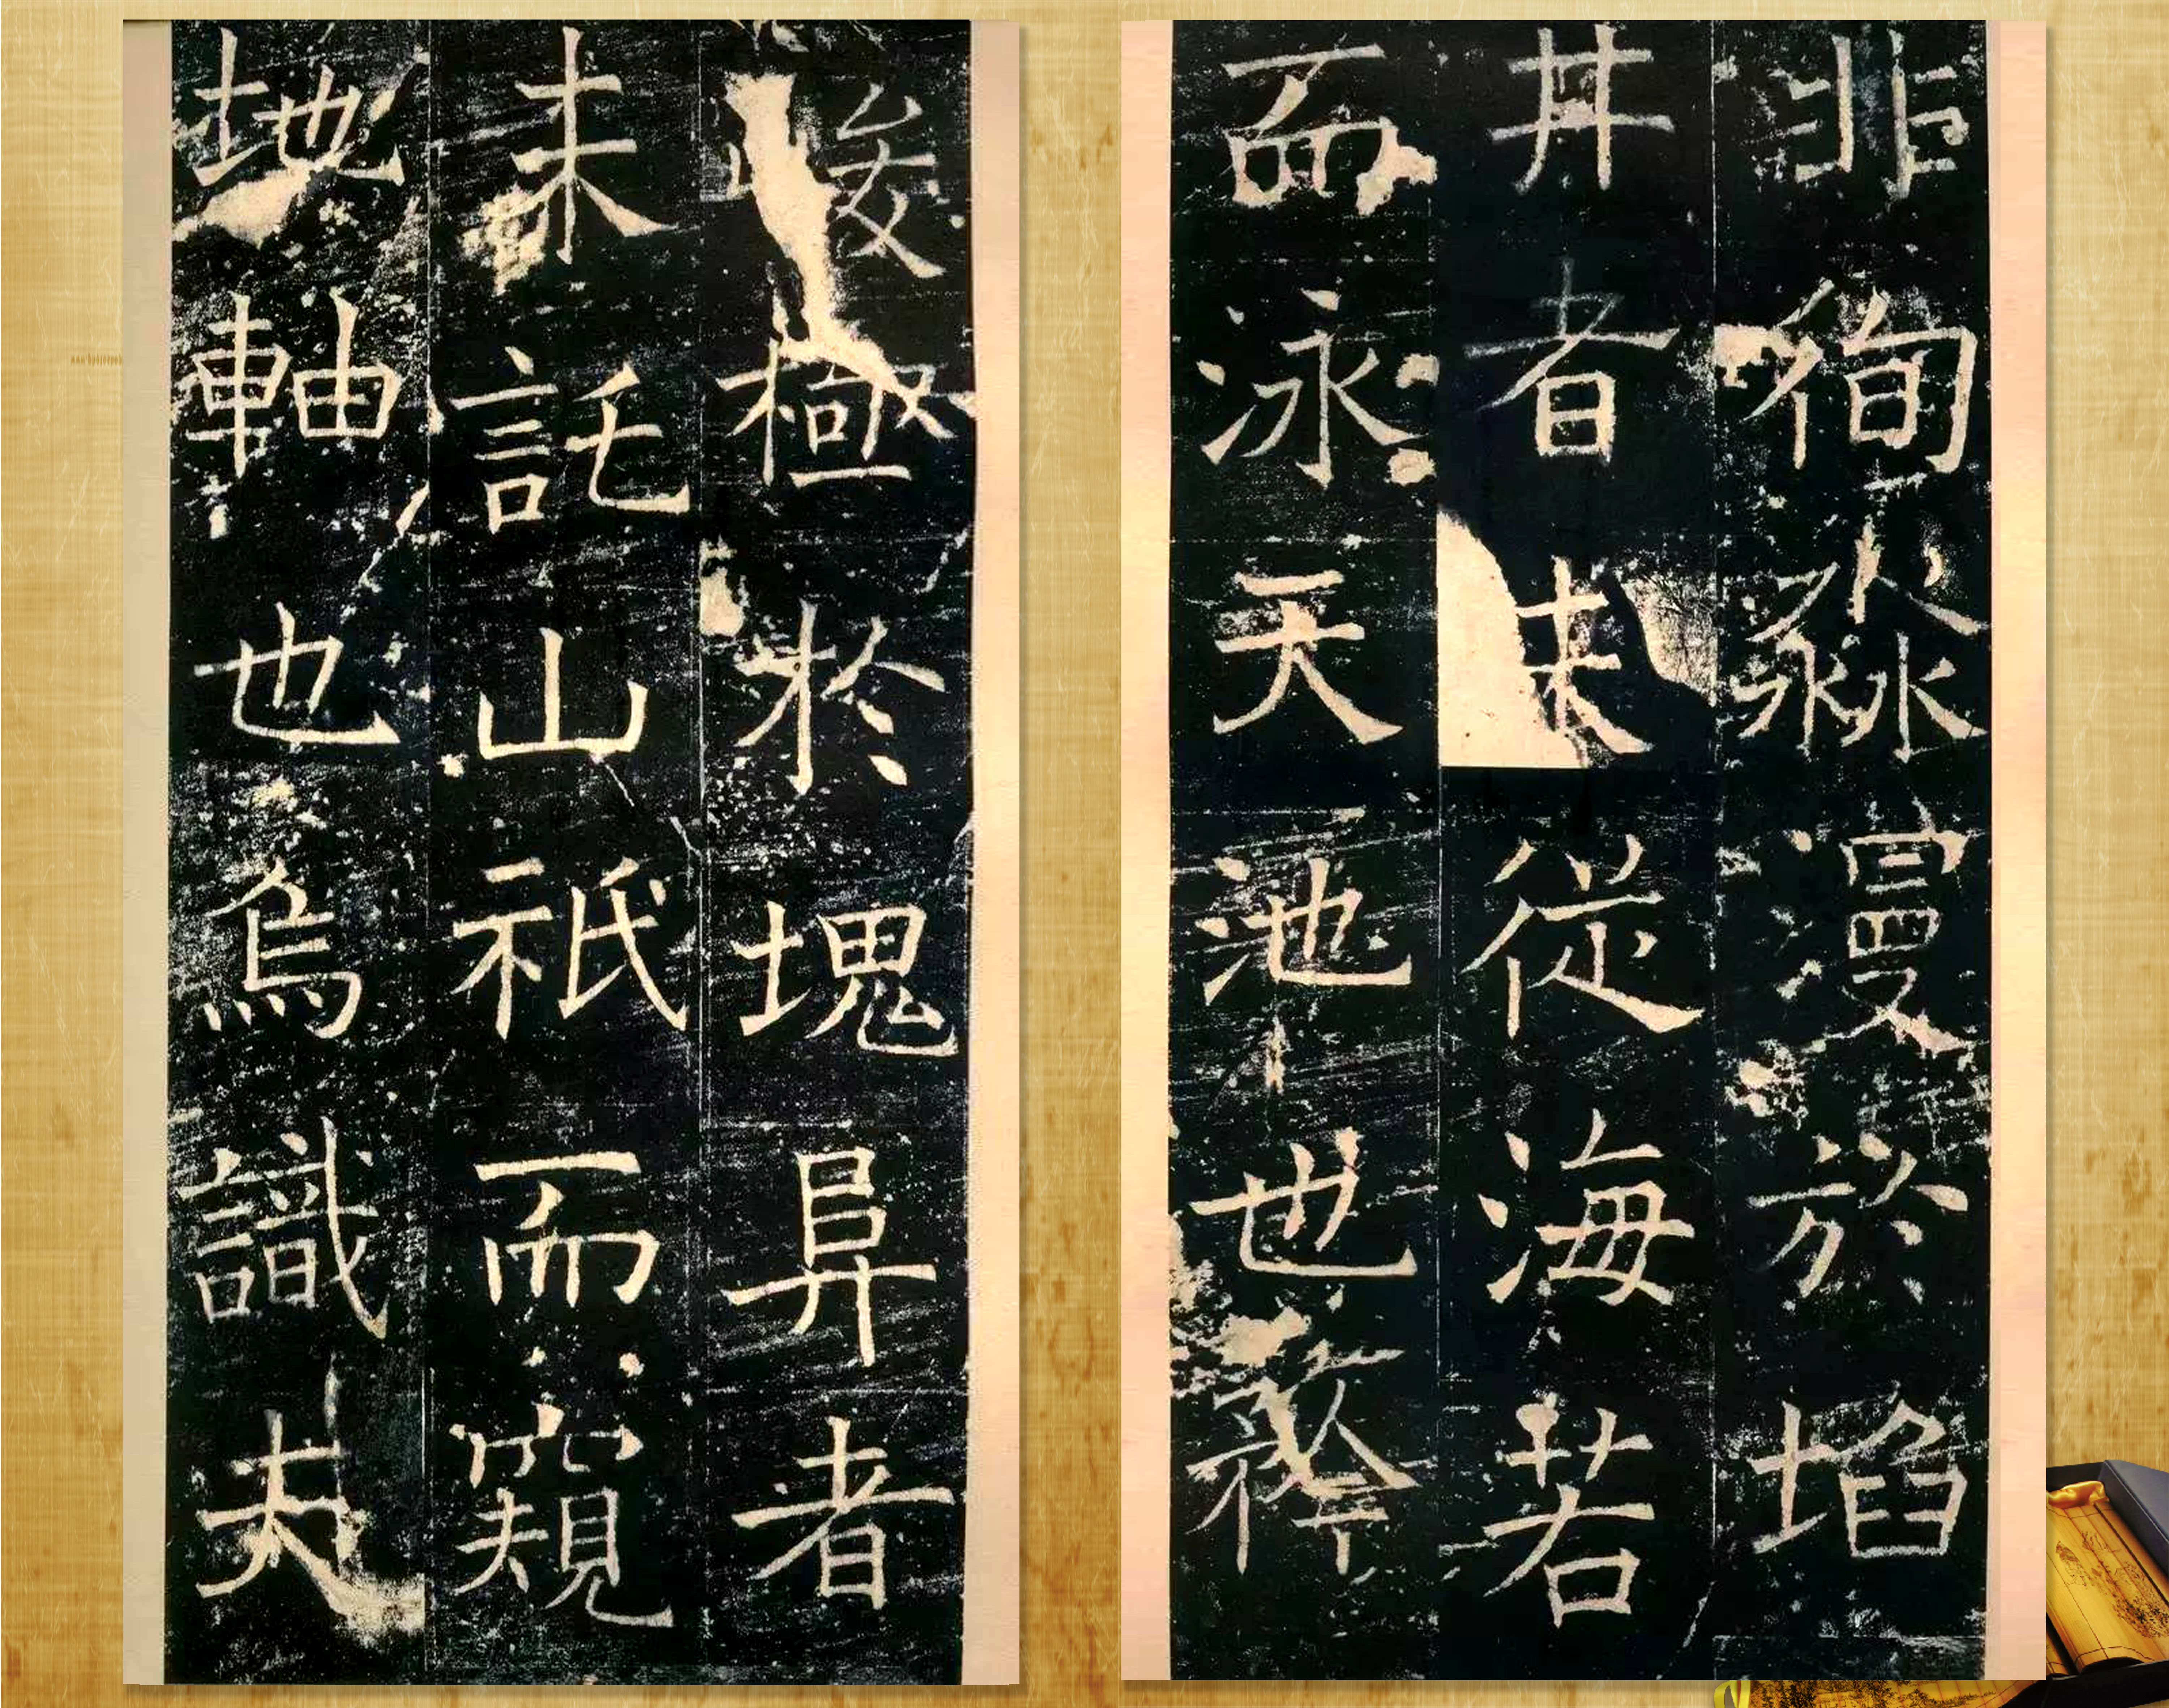 非徇淼漫於埳
井者未從海若
而泳天池也
峻極於塊阜者
未託山祇而窺
地軸也烏識夫